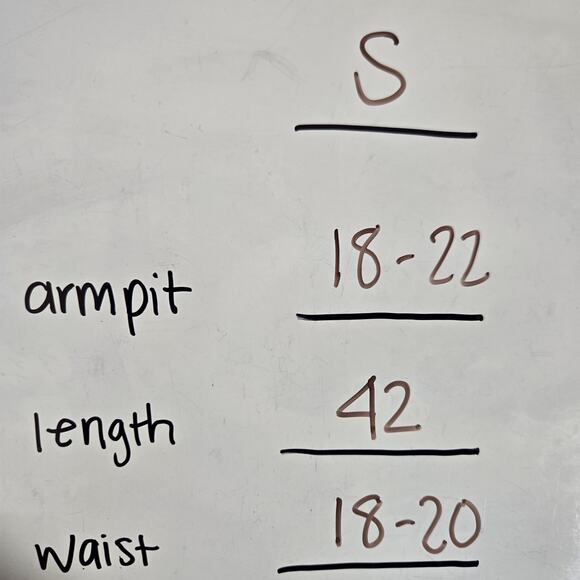 S
armpit 18-22
length 42
waist 18-20